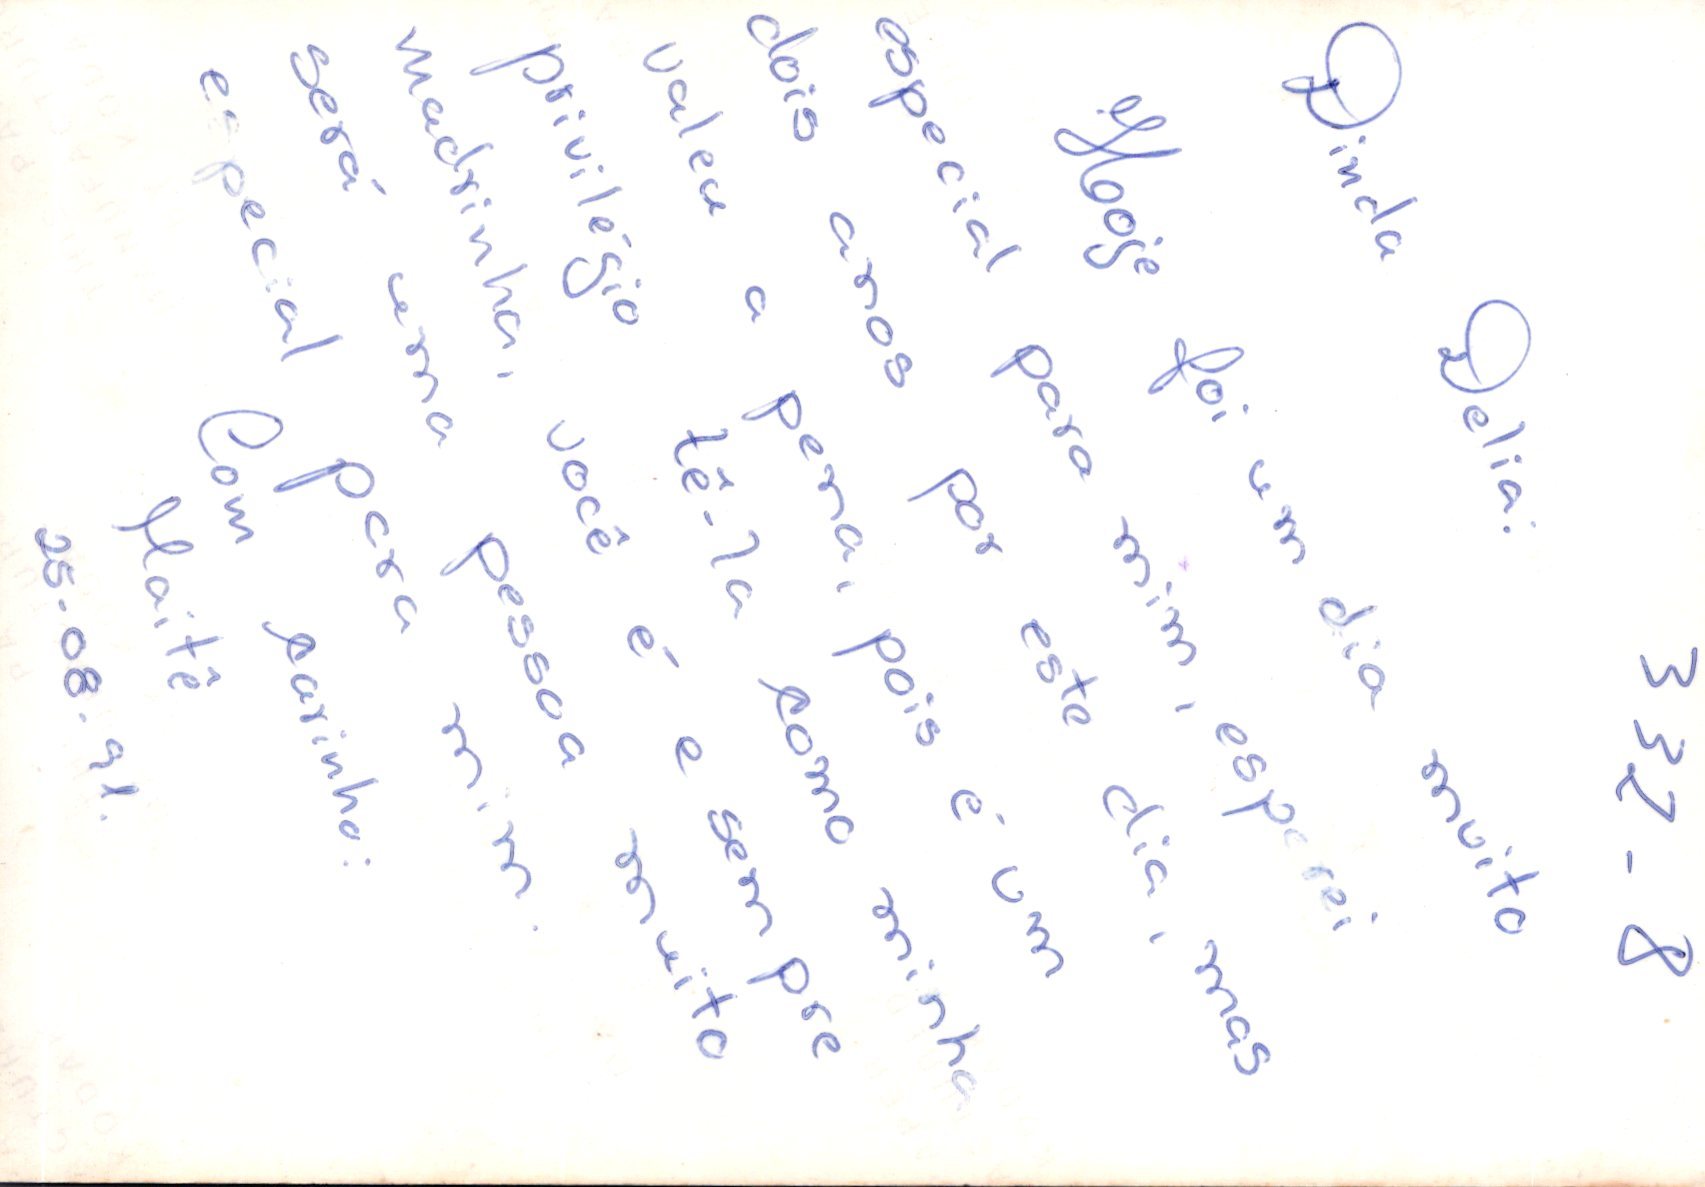 332-8
Dinda Delia:
Hoje foi um dia muito
especial para mim, esperei
dois anos por este dia, mas
valeu a pena, pois é um
privilégio tê-la como minha
madrinha, você é e sempre
será uma pessoa muito
especial para mim.
Com carinho:
Maitê
25-08-91.